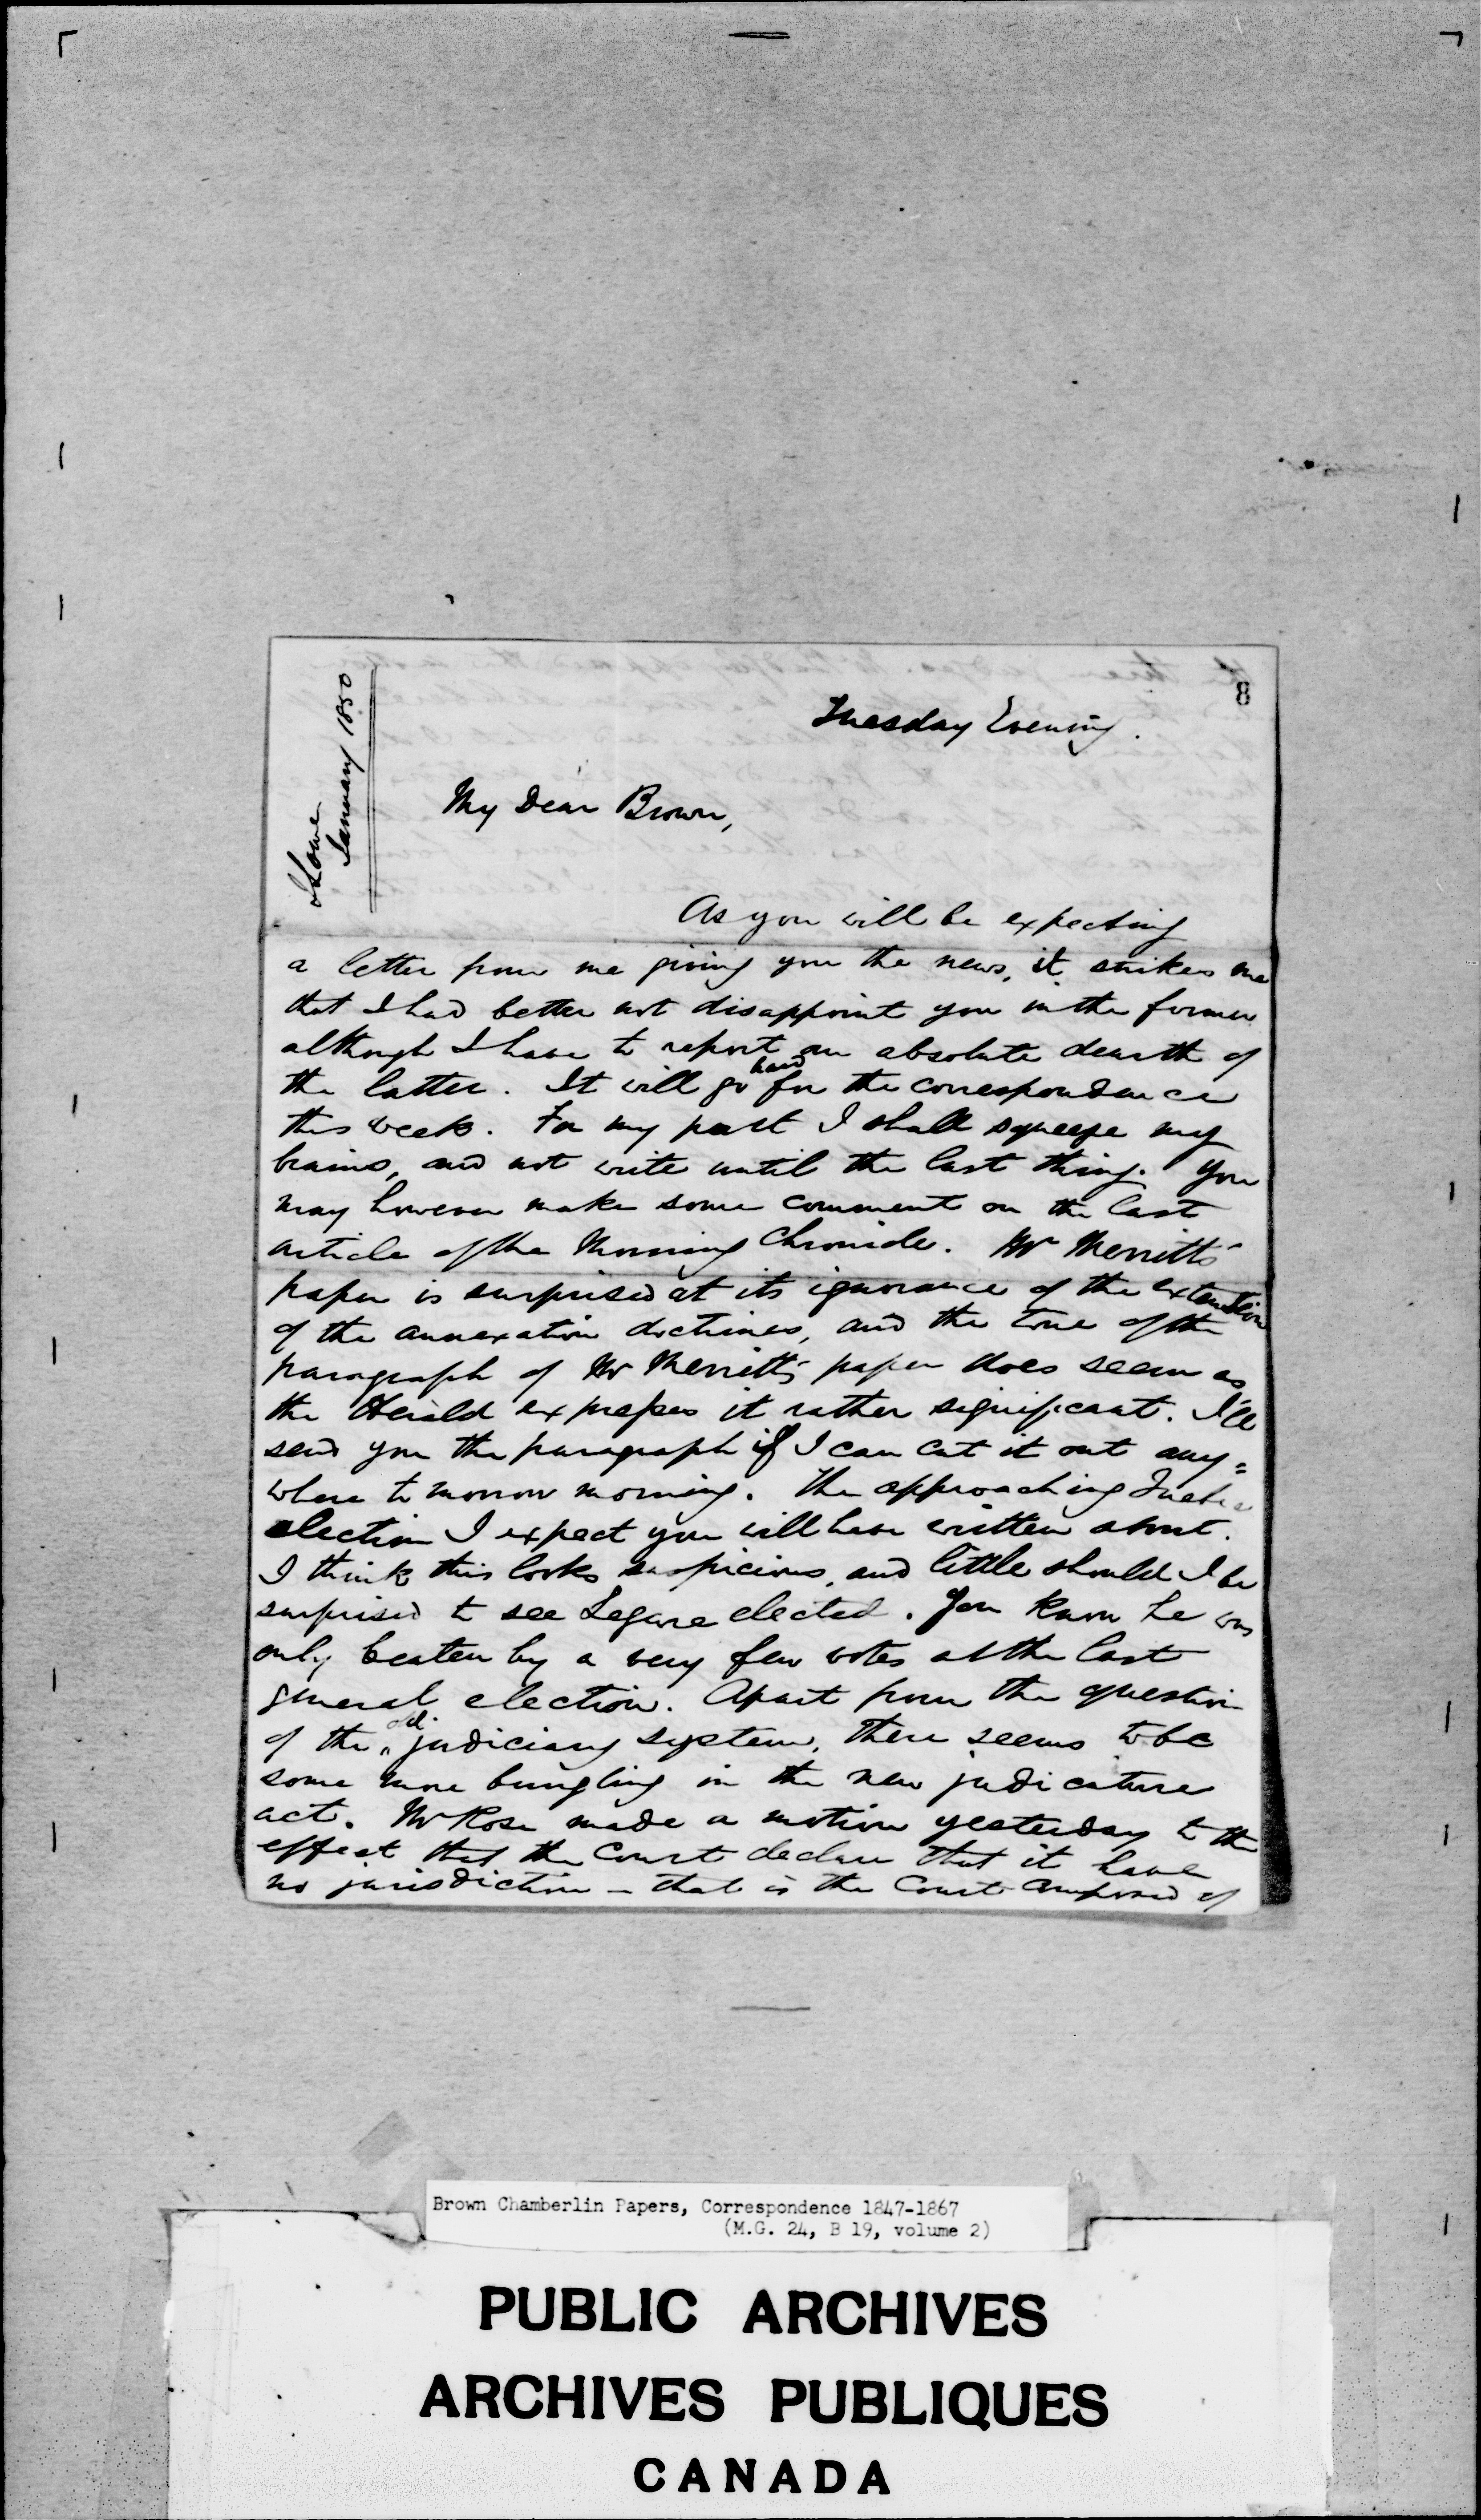 8
J Lowe
January 1850
Tuesday Evening.
My Dear Brown,
As you will be expecting
a letter from me giving you the news, it strikes me
that I had better not disappoint you in the former
although I have to report an absolute dearth of
the latter. It will go hard for the correspondence
this week. For my part I shall squeeze my
brains, and not write until the last thing. You
may however make some comment on the last
article of the Morning Chronicle. Mr Merritt's
paper is surprised at its ignorance of the extension
of the annexation doctrines, and the tone of the
paragraph of Mr Merritt's paper does seem as
the Herald expresses it rather significant. I'll
send you the paragraph if I can cut it out any=
where to morrow morning. The approaching Quebec
election I expect you will have written about.
I think this looks suspicious, and little should I be
surprised to see Legare elected. You know he was
only beaten by a very few votes at the last
general election. Apart from the question
of the old judiciary system, there seems to be
some more bungling in the new judicature
act. Mr Rose made a motion yesterday to the
effect that the Court declare that it have
no jurisdiction – that is the Court composed of
Brown Chamberlin Papers, Correspondence 1847-1867
(M.G. 24, B 19, volume 2)
PUBLIC ARCHIVES
ARCHIVES PUBLIQUES
CANADA